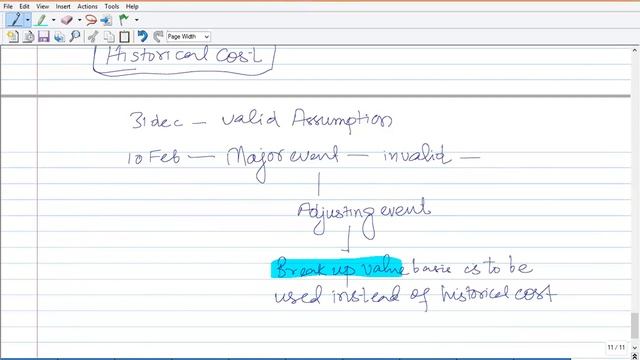 File Edit View Insert Actions Tools Help
Page Width
Historical Cost
31 dec – valid Assumption
10 Feb – Major event – invalid –
Adjusting event
Break up value basis is to be
used instead of historical cost
11 / 11